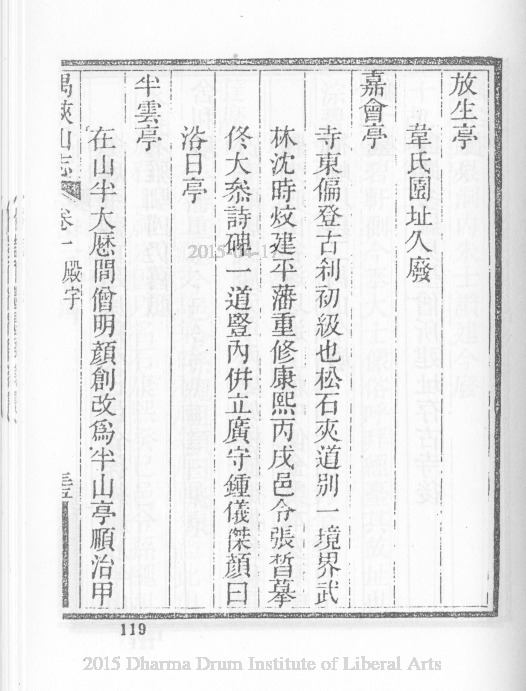 放生亭
韋氏園址久廢
嘉會亭
寺東偏登古刹初級也松石夾道別一境界武
林沈時燉建平藩重修康熙丙戌邑令張晳摹
佟大叅詩碑一道豎內併立廣守鍾儀傑顏曰
浴日亭
半雲亭
在山半大曆間僧明顔創改爲半山亭順治甲
禺峽山志
卷一
殿宇
119
2015-04-17
2015 Dharma Drum Institute of Liberal Arts